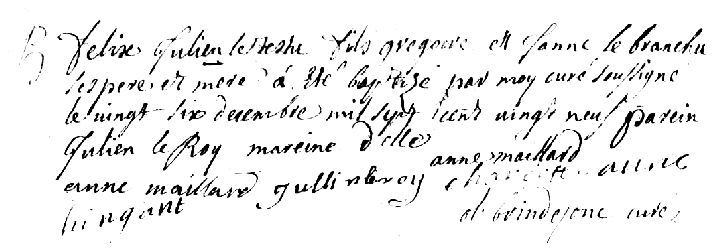 B felix Julien lestestu fils gregoire et Janne le branchu
ses pere et mere á eté baptizé par moy curé soussigné
le vingt six decembre mil sept cent vingt neuf parein
Julien le Roy mareine dlle
anne maillard
anne maillard Jullin leroy anne
hingant
brindejonc curé